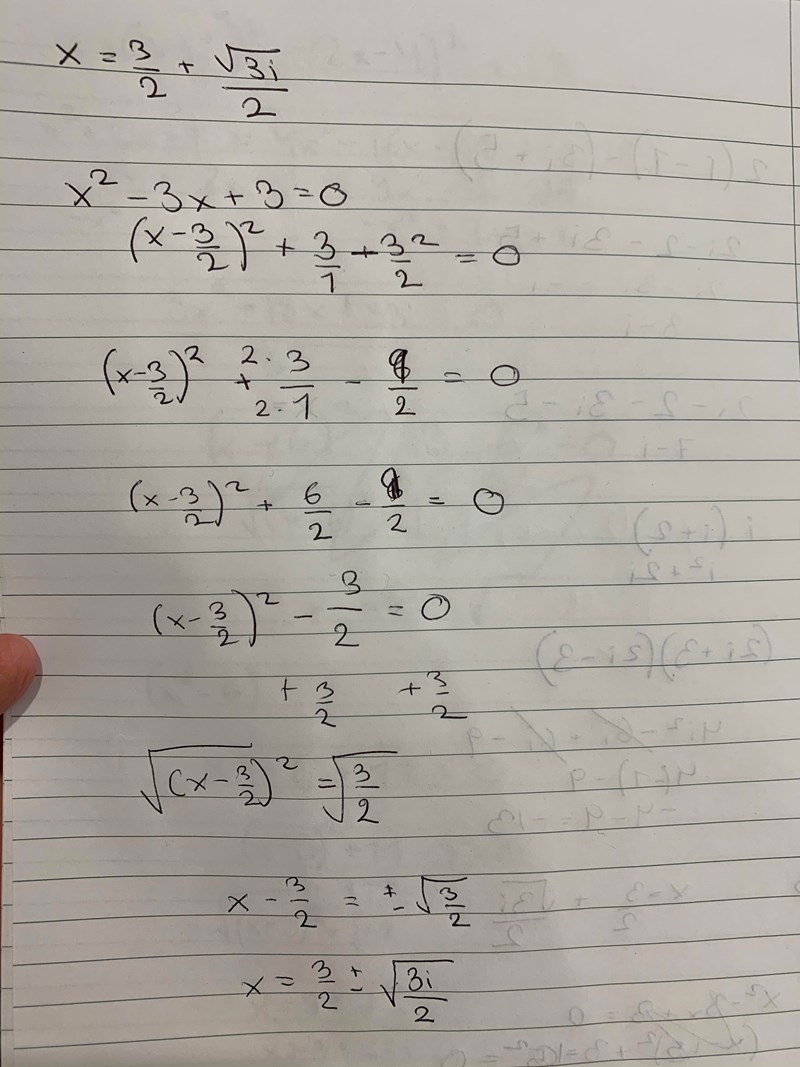 x = 3/2 + √3i/2
x² - 3x + 3 = 0
(x - 3/2)² + 3/1 + 3²/2 = 0
(x - 3/2)² + 2·3/2·1 - 9/2 = 0
(x - 3/2)² + 6/2 - 9/2 = 0
(x - 3/2)² - 3/2 = 0
+ 3/2 + 3/2
√(x - 3/2)² = √3/2
x - 3/2 = ± √3/2
x = 3/2 ± √3i/2